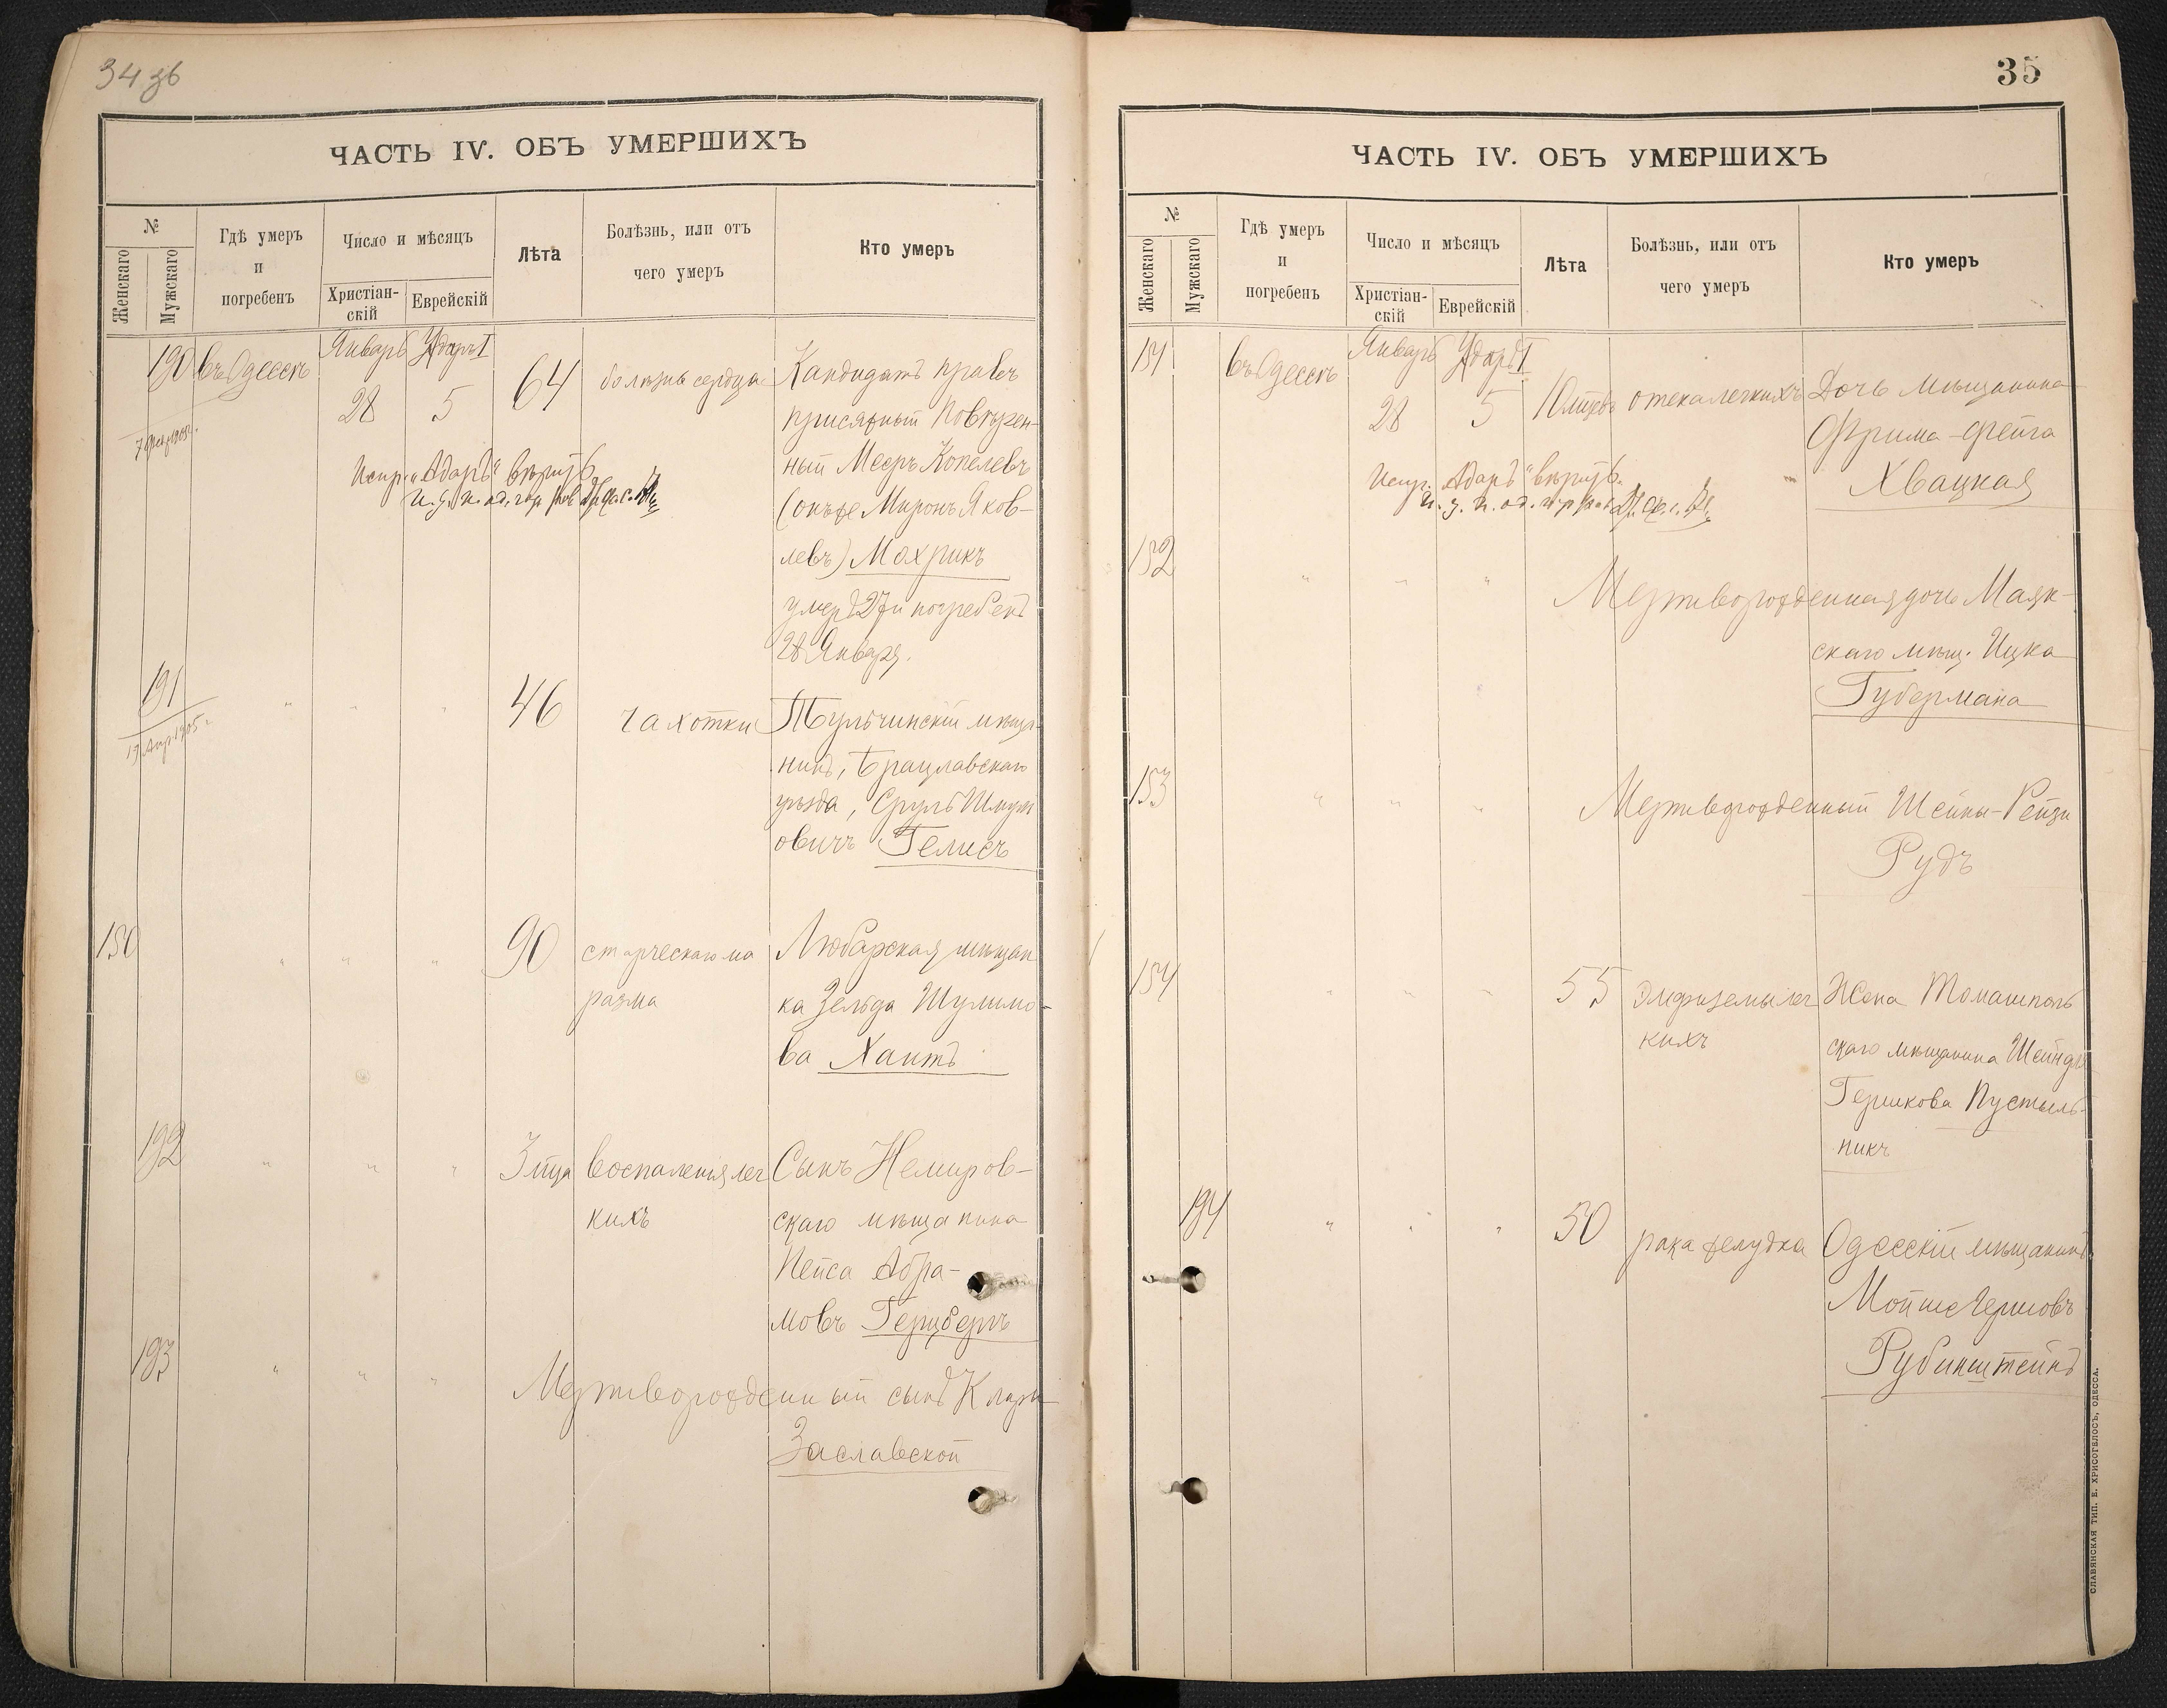 34 зв
ЧАСТЬ IV. ОБЪ УМЕРШИХЪ
№
Женскаго
Мужскаго
Гдѣ умеръ
и
погребенъ
Число и мѣсяцъ
Христіан-
скій
Еврейскій
Лѣта
Болѣзнь, или отъ
чего умеръ
Кто умеръ
190 въ Одессѣ Январь Адаръ I
28 5 64 болѣзнь сердца Кандидатъ правъ
присяжный повѣрен-
ный Мееръ Копелевъ
Испр. „Адаръ" вѣрить
(онъ же Миронъ Яков-
левъ) Мохрикъ
умеръ 27 и погребенъ
28 Января.
191 " " " 46 чахотки Тульчинскій мѣща-
нинъ, Брацлавскаго
уѣзда, Сруль Шмул
овичъ Гелисъ
150 " " " 90 старческаго ма Любарская мѣщан
разма ка Зельда Шулимо-
ва Хаитъ
192 " " " 3 мца воспаленія лег Сынъ Немиров-
кихъ скаго мѣщанина
Пейса Абра-
мовъ Герцбергъ
193 " " " Мертворожденный сынъ Клары
Заславской
35
ЧАСТЬ IV. ОБЪ УМЕРШИХЪ
№
Женскаго
Мужскаго
Гдѣ умеръ
и
погребенъ
Число и мѣсяцъ
Христіан-
скій
Еврейскій
Лѣта
Болѣзнь, или отъ
чего умеръ
Кто умеръ
151 въ Одессѣ Январь Адаръ I
28 5 10 мцевъ отека легкихъ Дочь мѣщанина
Фрима-Фейга
Хвацкая
Испр. „Адаръ" вѣрить
152 " " " Мертворожденная дочь Маяк-
скаго мѣщ. Ицка
Губермана
153 " " " Мертворожденный Шейны-Рейзи
Рудъ
154 " " " 55 Эмфиземы лег Жена Томашполь
кихъ скаго мѣщанина Шейндля
Гершкова Пустыль-
никъ
194 " " " 50 рака желудка Одесскій мѣщанинъ
Мойше Гершовъ
Рубинштейнъ
СЛАВЯНСКАЯ ТИП. Е. ХРИСОГЕЛОСЪ, ОДЕССА.